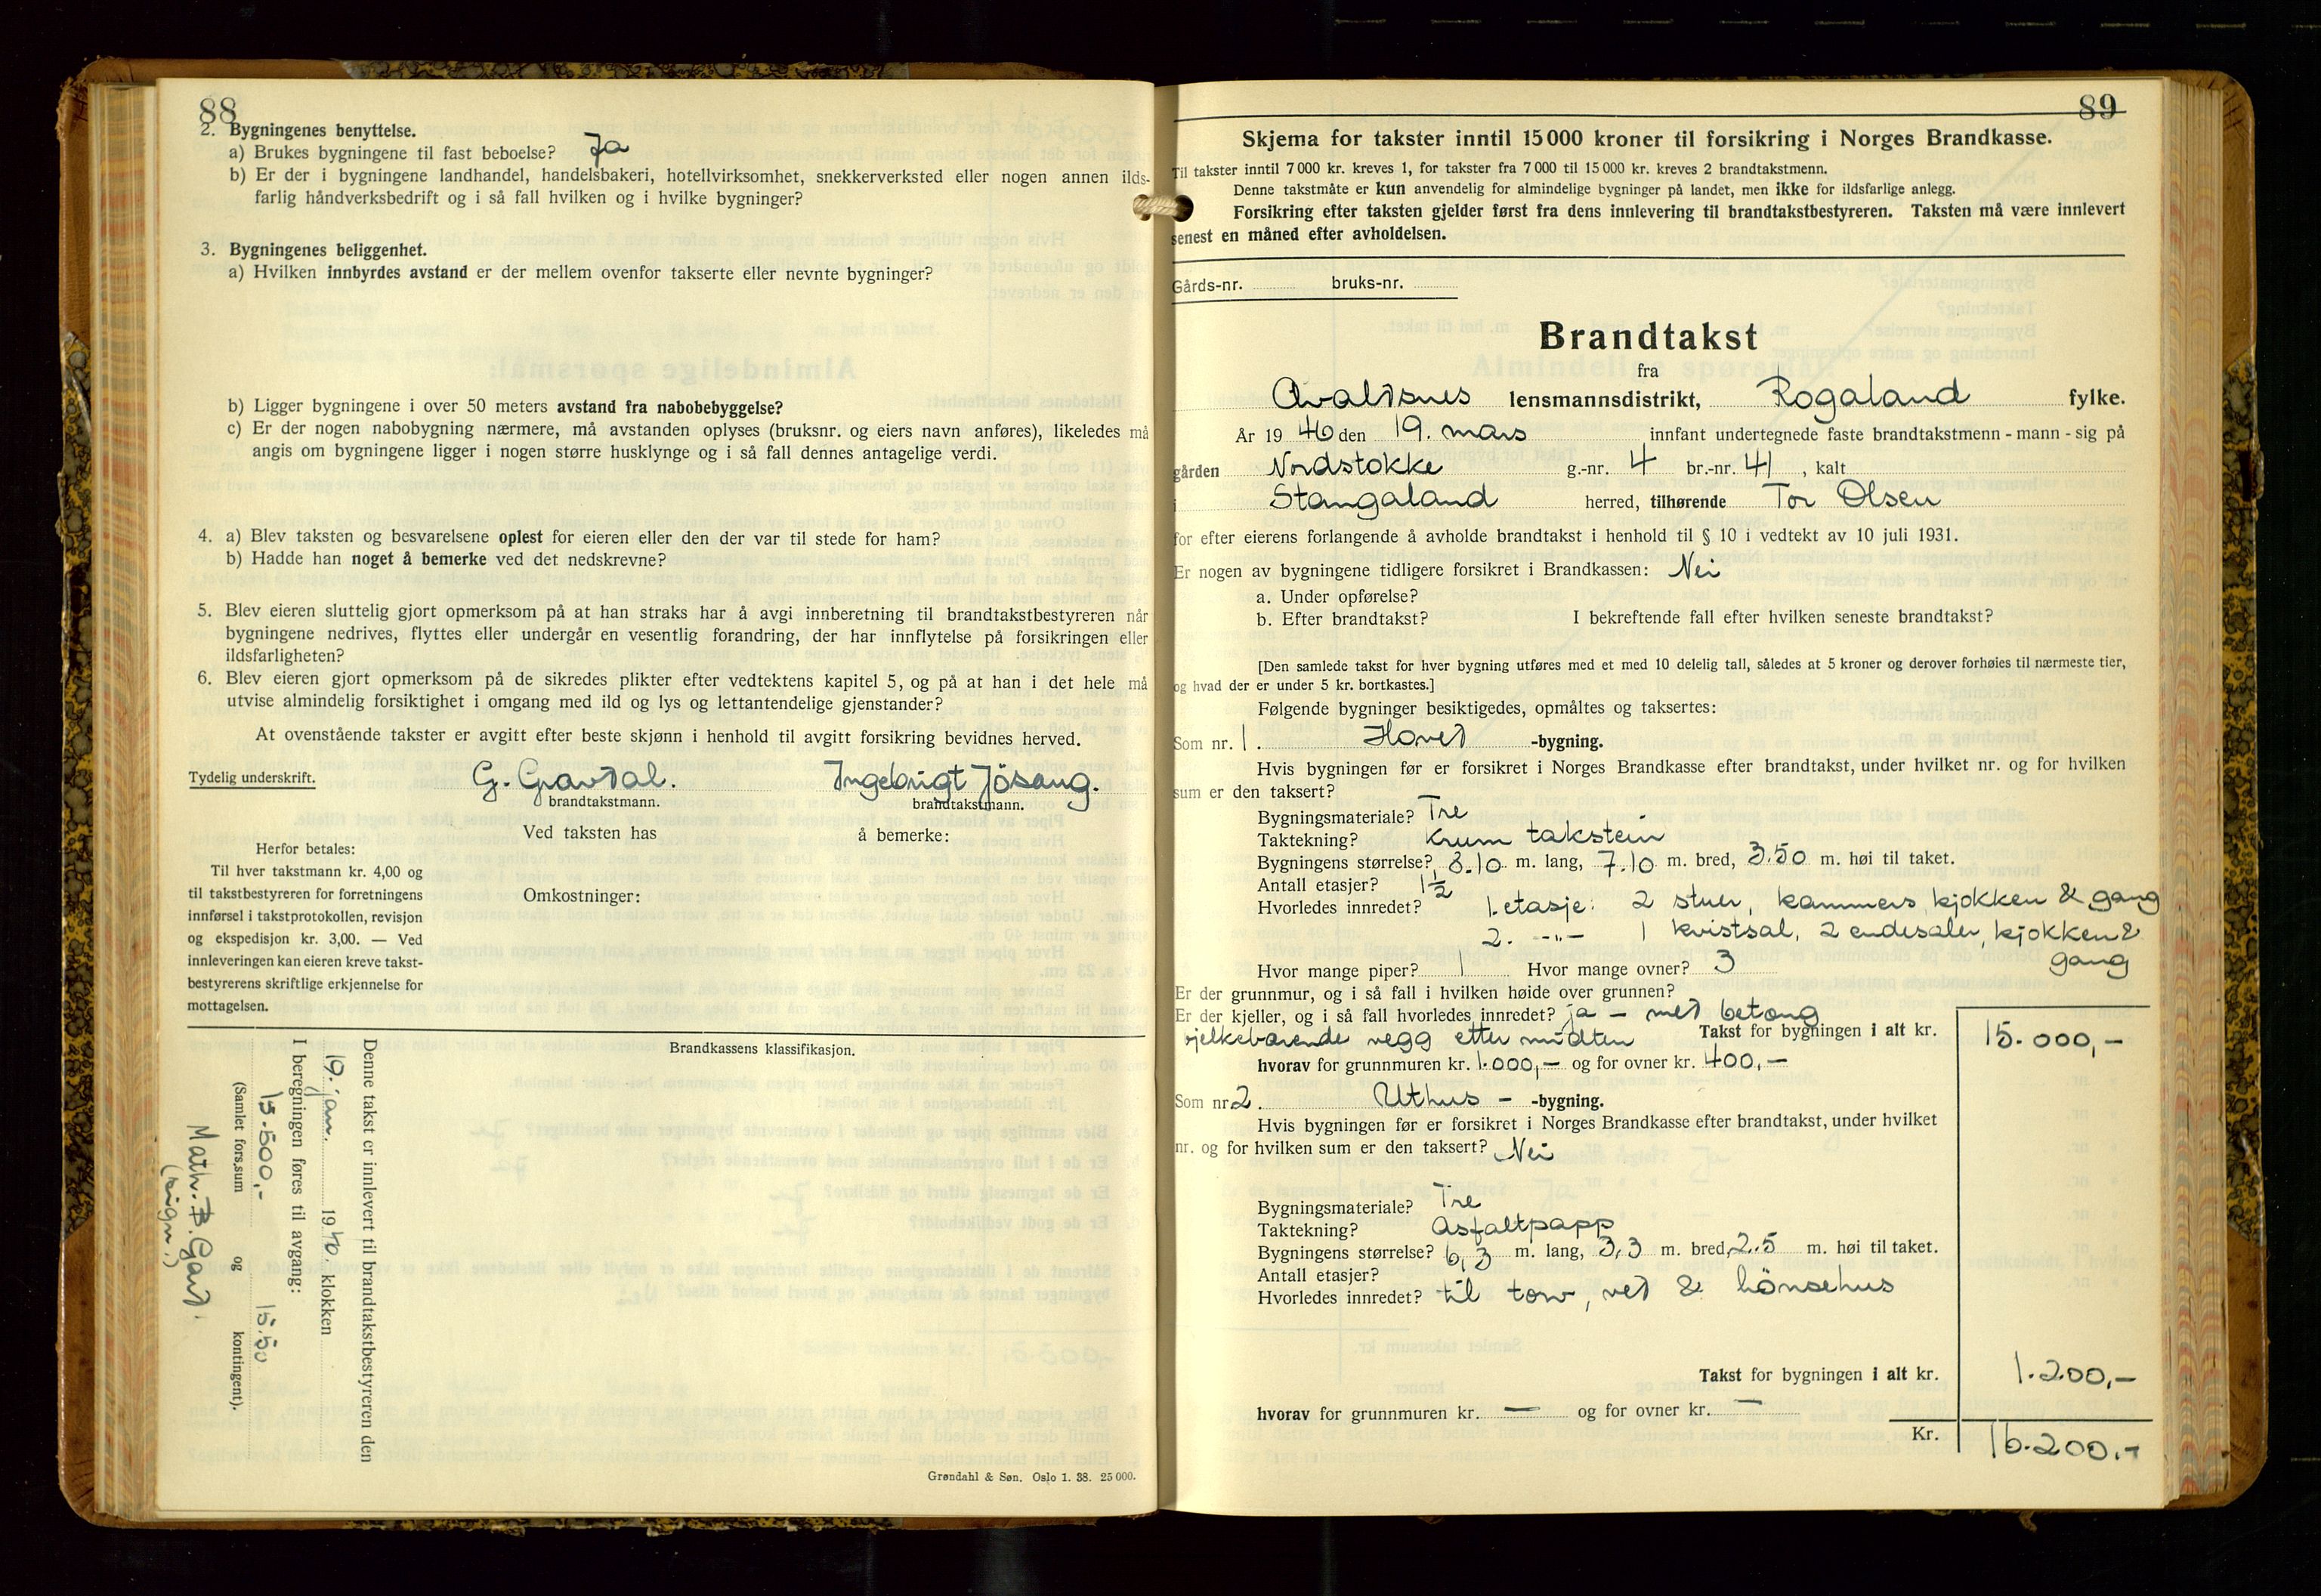 88
2. Bygningenes benyttelse.
a) Brukes bygningene til fast beboelse? Ja
b) Er der i bygningene landhandel, handelsbakeri, hotellvirksomhet, snekkerverksted eller nogen annen ilds-
farlig håndverksbedrift og i så fall hvilken og i hvilke bygninger?
3. Bygningenes beliggenhet.
a) Hvilken innbyrdes avstand er der mellem ovenfor takserte eller nevnte bygninger?
b) Ligger bygningene i over 50 meters avstand fra nabobebyggelse?
c) Er der nogen nabobygning nærmere, må avstanden oplyses (bruksnr. og eiers navn anføres), likeledes må
angis om bygningene ligger i nogen større husklynge og i så fall dennes antagelige verdi.
4. a) Blev taksten og besvarelsene oplest for eieren eller den der var til stede for ham?
b) Hadde han noget å bemerke ved det nedskrevne?
5. Blev eieren sluttelig gjort opmerksom på at han straks har å avgi innberetning til brandtakstbestyreren når
bygningene nedrives, flyttes eller undergår en vesentlig forandring, der har innflytelse på forsikringen eller
ildsfarligheten?
6. Blev eieren gjort opmerksom på de sikredes plikter efter vedtektens kapitel 5, og på at han i det hele må
utvise almindelig forsiktighet i omgang med ild og lys og lettantendelige gjenstander?
At ovenstående takster er avgitt efter beste skjønn i henhold til avgitt forsikring bevidnes herved.
Tydelig underskrift. G. Gravdal. Ingebrigt Jösang.
brandtakstmann. brandtakstmann.
Ved taksten has å bemerke:
Herfor betales:
Til hver takstmann kr. 4,00 og
til takstbestyreren for forretningens
innførsel i takstprotokollen, revisjon
og ekspedisjon kr. 3,00. — Ved
innleveringen kan eieren kreve takst-
bestyrerens skriftlige erkjennelse for
mottagelsen.
Omkostninger:
Brandkassens klassifikasjon.
Denne takst er innlevert til brandtakstbestyreren den
19. jan. 1940. klokken
I beregningen føres til avgang:
15.500,- 15.50
(Samlet fors.sum og kontingent).
Math. B. Gard.
(sign.)
Grøndahl & Søn. Oslo 1. 38. 25 000.
89
Skjema for takster inntil 15 000 kroner til forsikring i Norges Brandkasse.
Til takster inntil 7 000 kr. kreves 1, for takster fra 7 000 til 15 000 kr. kreves 2 brandtakstmenn.
Denne takstmåte er kun anvendelig for almindelige bygninger på landet, men ikke for ildsfarlige anlegg.
Forsikring efter taksten gjelder først fra dens innlevering til brandtakstbestyreren. Taksten må være innlevert
senest en måned efter avholdelsen.
Gårds-nr. bruks-nr.
Brandtakst
fra
Avaldsnes lensmannsdistrikt, Rogaland fylke.
År 1946 den 19. mars innfant undertegnede faste brandtakstmenn - mann - sig på
gården Nordstokke g.-nr. 4 br.-nr. 41, kalt
i Stangaland herred, tilhørende Tor Olsen
for efter eierens forlangende å avholde brandtakst i henhold til § 10 i vedtekt av 10 juli 1931.
Er nogen av bygningene tidligere forsikret i Brandkassen: Nei
a. Under opførelse?
b. Efter brandtakst? I bekreftende fall efter hvilken seneste brandtakst?
[Den samlede takst for hver bygning utføres med et med 10 delelig tall, således at 5 kroner og derover forhøies til nærmeste tier,
og hvad der er under 5 kr. bortkastes.]
Følgende bygninger besiktigedes, opmåltes og taksertes:
Som nr. 1. Hoved -bygning.
Hvis bygningen før er forsikret i Norges Brandkasse efter brandtakst, under hvilket nr. og for hvilken
sum er den taksert?
Bygningsmateriale? Tre
Taktekning? Krum takstein
Bygningens størrelse? 8.10 m. lang, 7.10 m. bred, 3.50 m. høi til taket.
Antall etasjer? 1½
Hvorledes innredet? 1. etasje: 2 stuer, kammers, kjøkken & gang
2. -"- 1 kvistsal, 2 endesaler, kjøkken &
gang
Hvor mange piper? 1 Hvor mange ovner? 3
Er der grunnmur, og i så fall i hvilken høide over grunnen?
Er der kjeller, og i så fall hvorledes innredet? ja - med betong
bjelkebærende vegg etter midten Takst for bygningen i alt kr. 15.000,-
hvorav for grunnmuren kr. 1.000,- og for ovner kr. 400,-
Som nr. 2. Uthus - -bygning.
Hvis bygningen før er forsikret i Norges Brandkasse efter brandtakst, under hvilket
nr. og for hvilken sum er den taksert? Nei
Bygningsmateriale? Tre
Taktekning? Asfaltpapp
Bygningens størrelse? 6,3 m. lang, 3,3 m. bred, 2.5 m. høi til taket.
Antall etasjer?
Hvorledes innredet? til torv, ved & hönsehus
Takst for bygningen i alt kr. 1.200,-
hvorav for grunnmuren kr. — og for ovner kr. —
Kr. 16.200,-